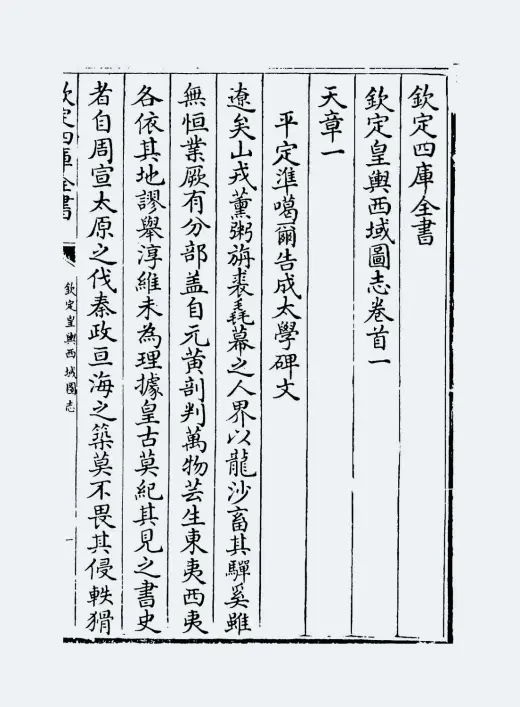 欽定四庫全書
欽定皇輿西域圖志卷首一
天章一
平定準噶爾告成太學碑文
遼矣山戎薰粥旃裘毳幕之人界以龍沙畜其驒奚雖
無恒業厥有分部盖自元黄剖判萬物芸生東夷西夷
各依其地謬舉淳維未為理據皇古莫紀其見之書史
者自周宣太原之伐秦政亘海之築莫不畏其侵軼猾
欽定四庫全書
欽定皇輿西域圖志
一